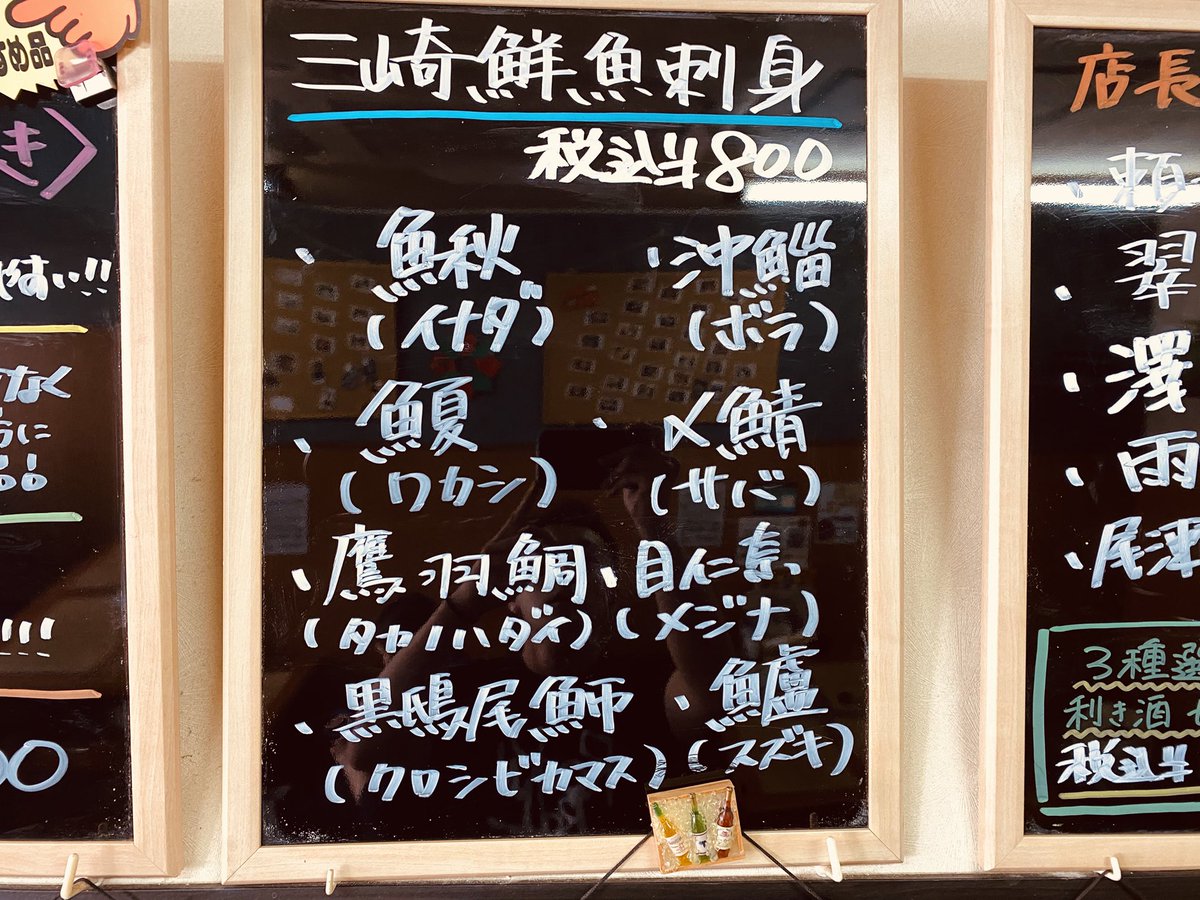 すめ品
き〉
やすい!!
なく
00
三崎鮮魚刺身
税込¥800
・鰍
(イナダ)
・沖鯔
(ボラ)
・魚夏
(ワカシ)
・〆鯖
(サバ)
・鷹羽鯛
(タカノハダイ)
・目仁奈
(メジナ)
・黒鴟尾魳
(クロシビカマス)
・鱸
(スズキ)
店長
・頼
・翠
・澤
・雨
・尾澤
3種選
利き酒
税込¥